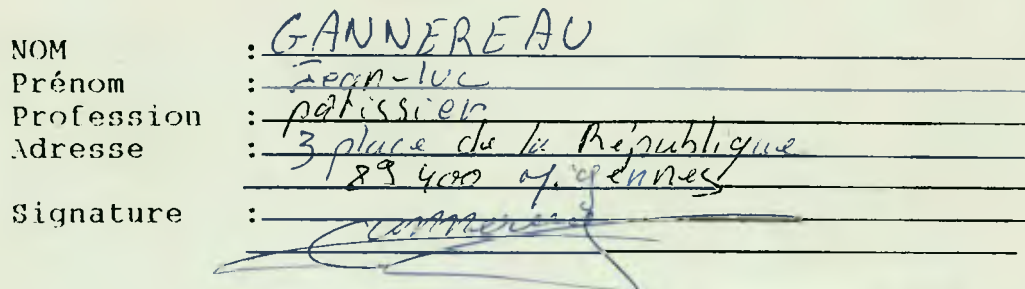 NOM : GANNEREAU
Prénom : Jean-luc
Profession : pâtissier
Adresse : 3 place de la République
89 400 Migennes
Signature :